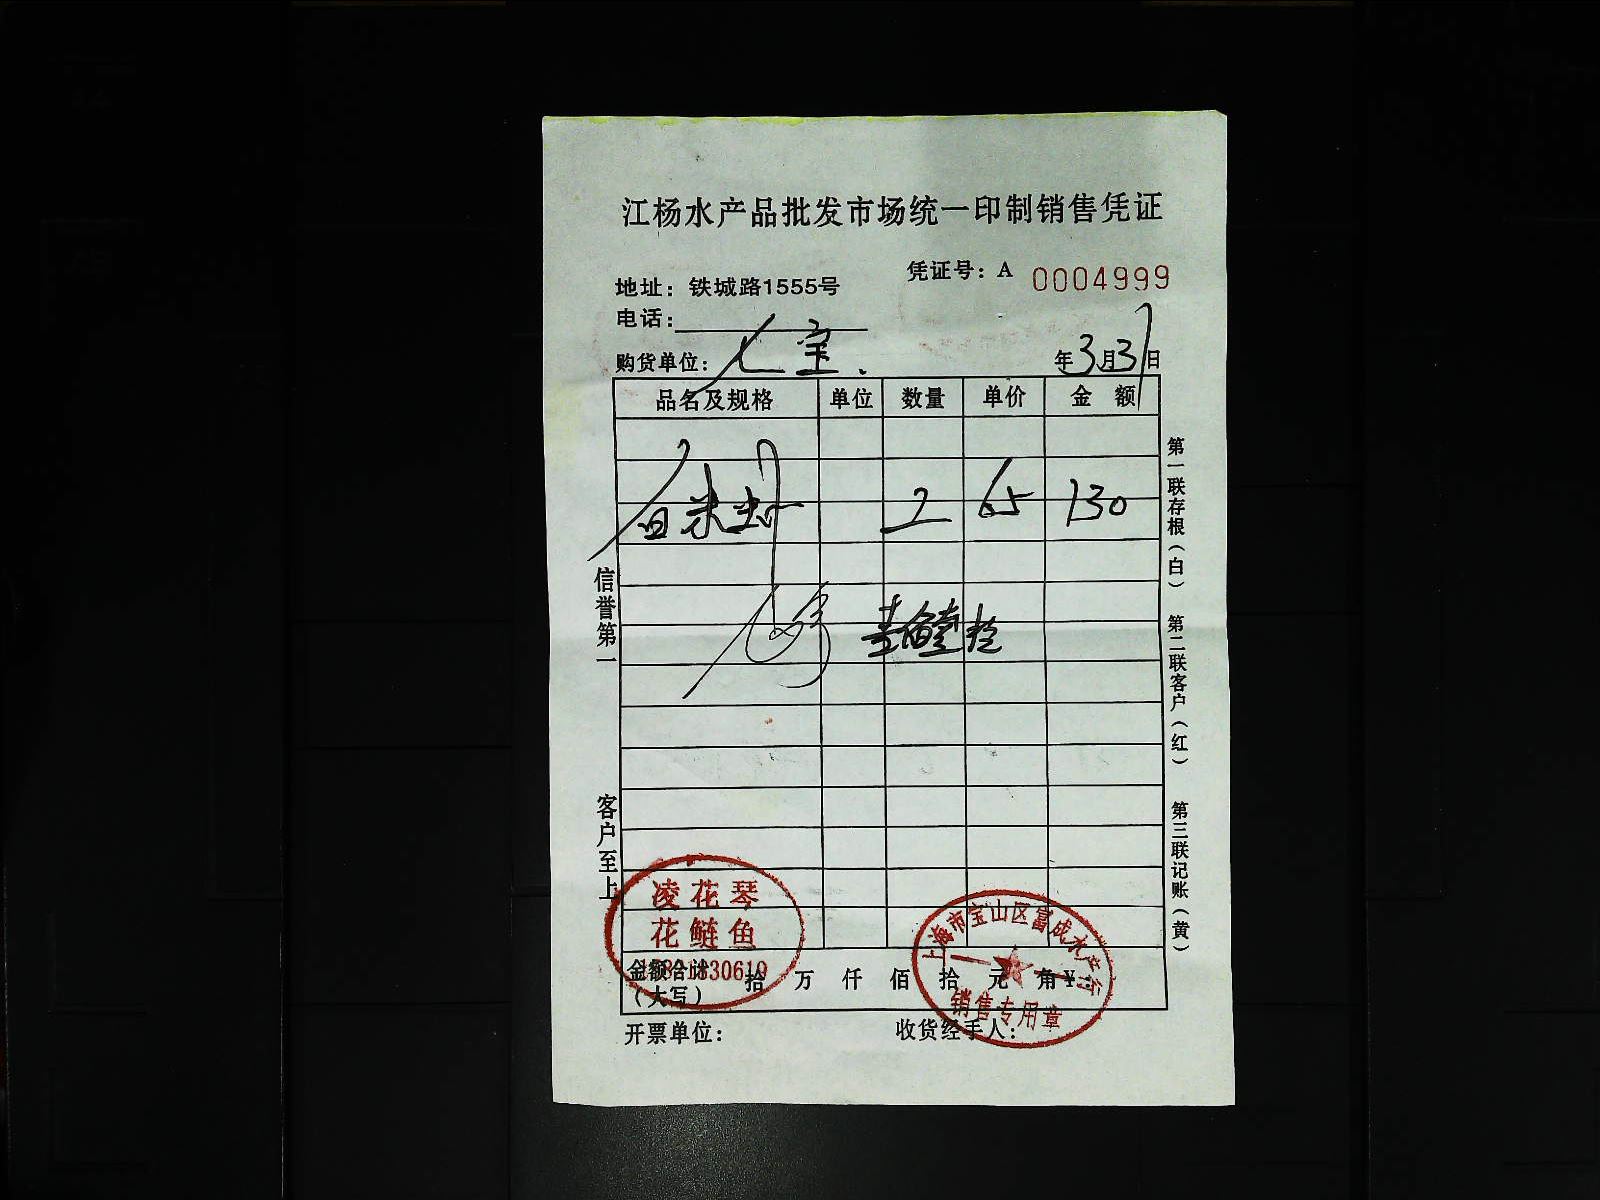 江杨水产品批发市场统一印制销售凭证
凭证号：A 0004999
地址：铁城路1555号
电话：
购货单位：七宝. 年3月31日
品名及规格 单位 数量 单价 金额
白米虾 2 65 130
凌花琴
花鲢鱼
金额合计（大写） 拾 万 仟 佰 拾 元 角 ¥：
上海市宝山区富成水产行
销售专用章
开票单位： 收货经手人：
信誉第一 客户至上
第一联存根（白） 第二联客户（红） 第三联记账（黄）